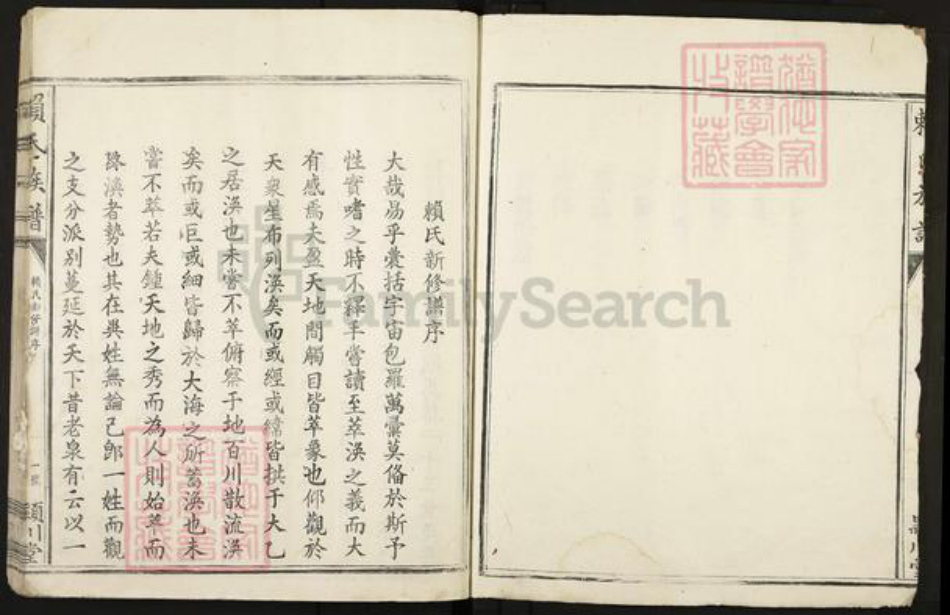 賴氏新修譜序
大哉易乎囊括宇宙包羅萬彙莫偹於斯予
性實嗜之時不釋手嘗讀至萃渙之義而大
有感焉夫盈天地間觸目皆萃象也仰觀於
天衆星布列渙矣而或經或緯皆拱于大乙
之居渙也未嘗不萃俯察于地百川散流渙
矣而或巨或細皆歸於大海之所蓄渙也未
嘗不萃若夫鍾天地之秀而為人則始萃而
終渙者勢也其在異姓無論已卽一姓而觀
之支分派別蔓延於天下昔老泉有云以一
賴氏族譜
賴氏新修譜序
一
潁川堂
猶他家
譜學會
收藏
猶他家
譜學會
收藏
FamilySearch